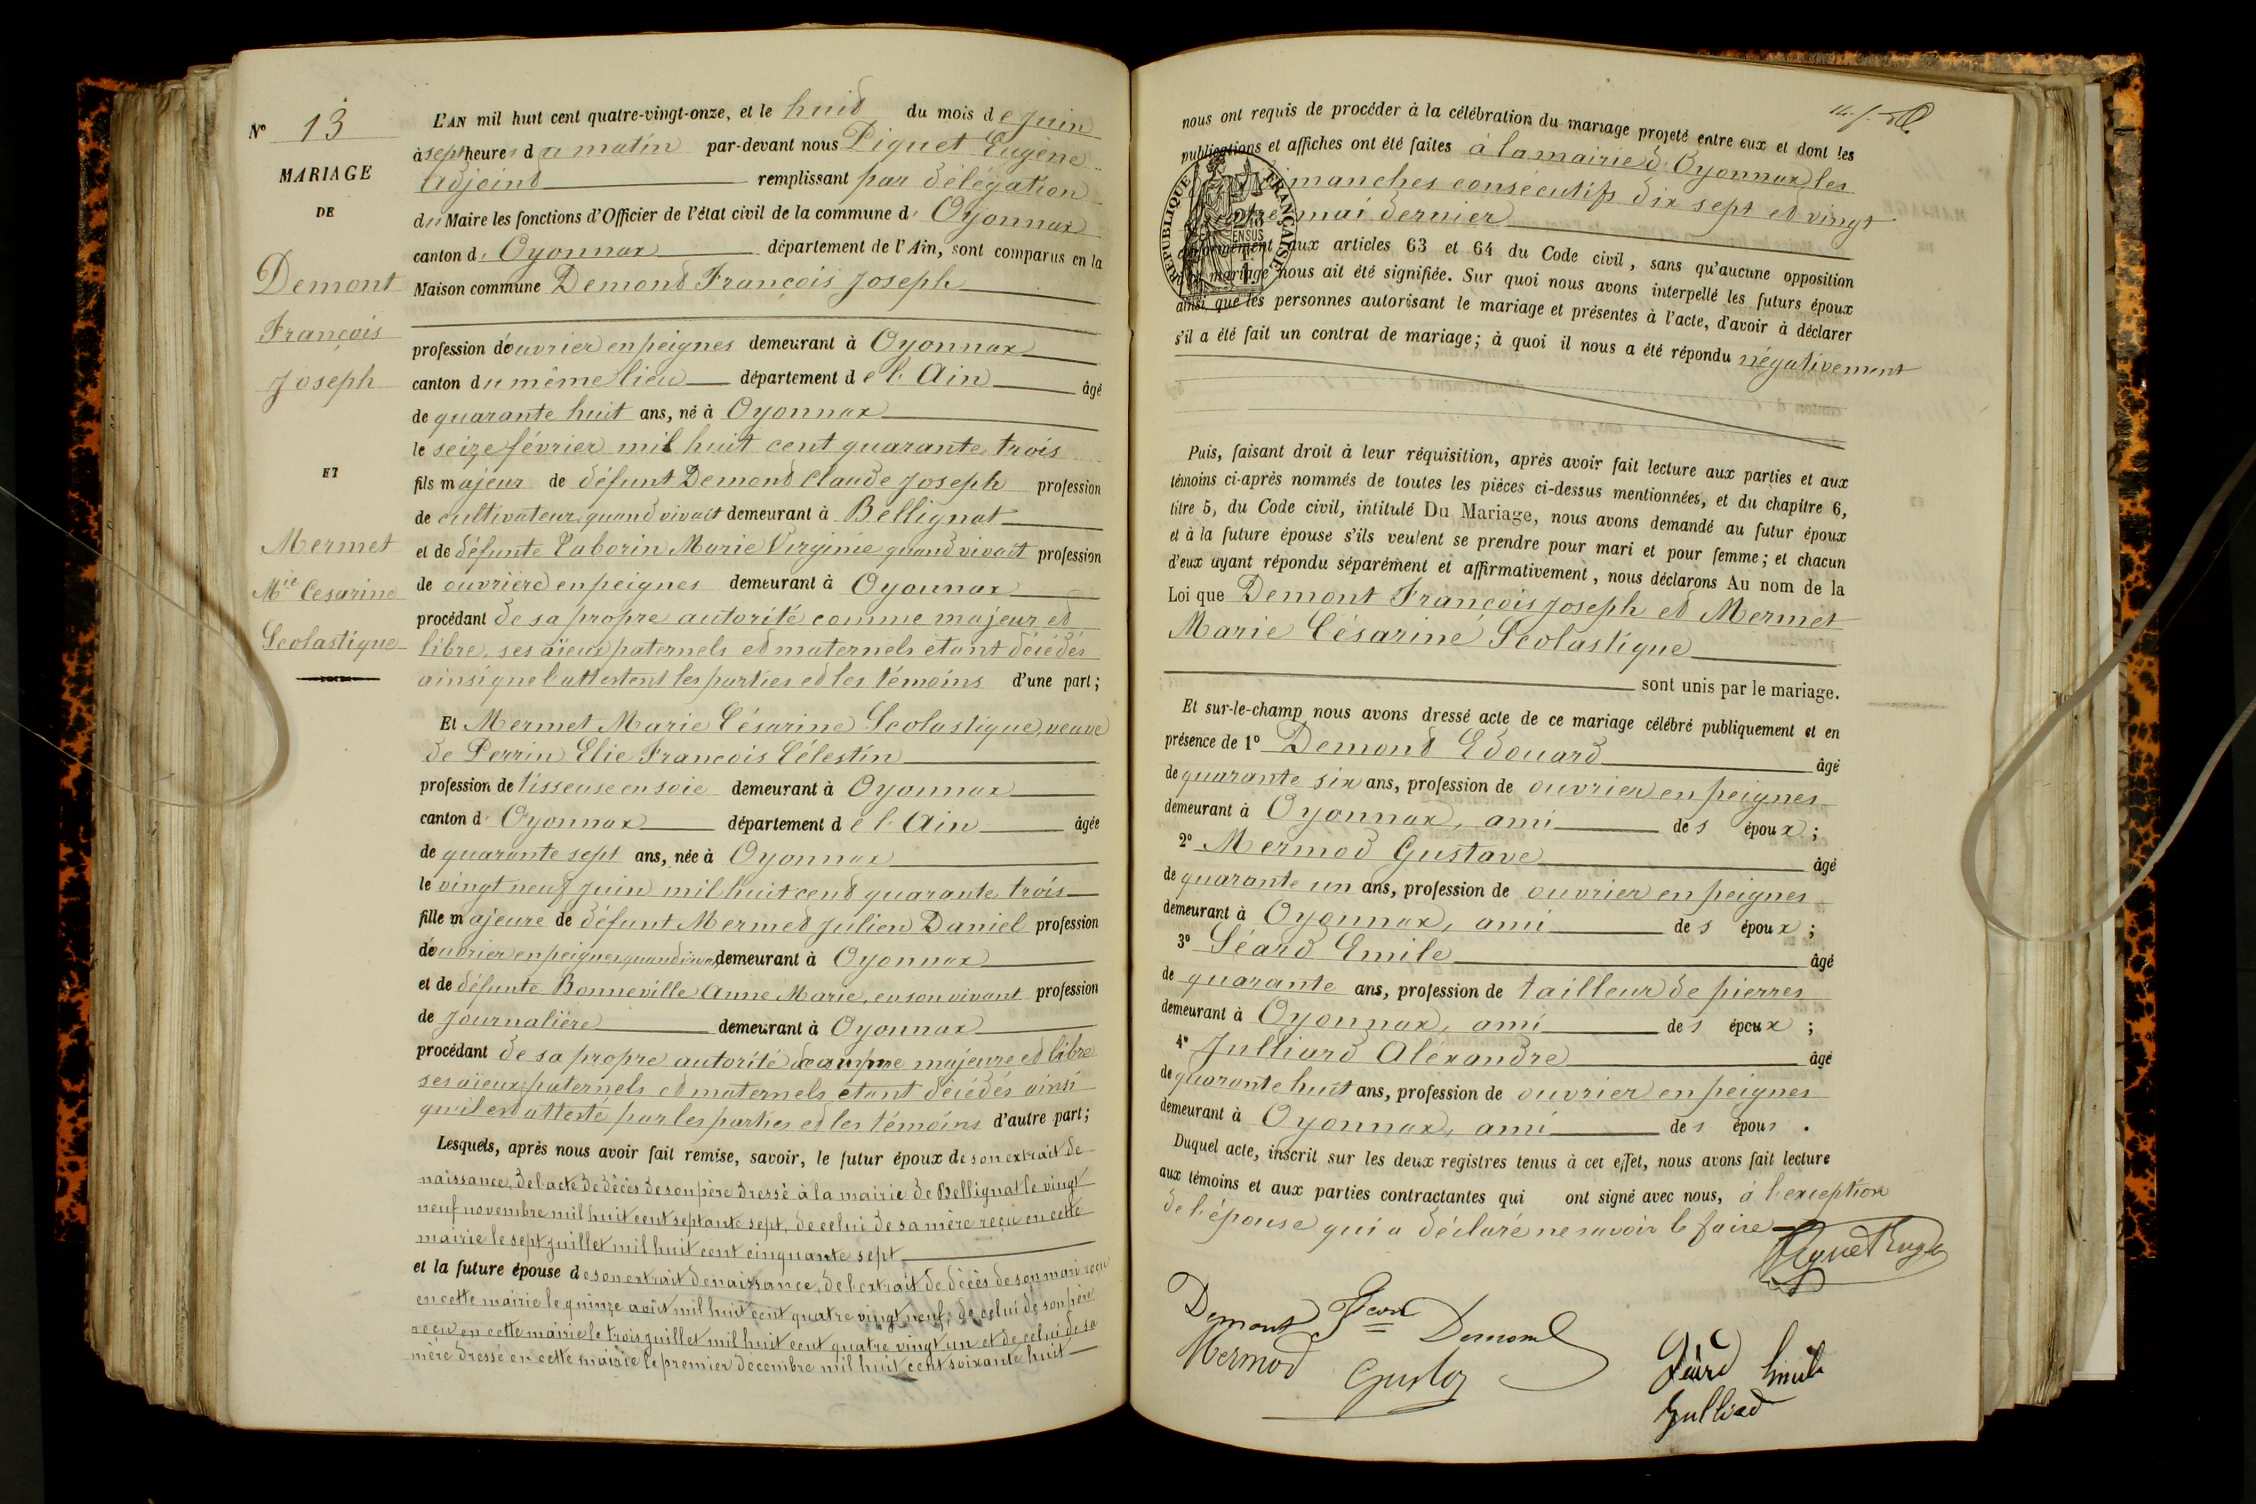 N° 13
MARIAGE
DE
Demont
François
Joseph
ET
Mermet
Mie Cesarine
Scolastique
L'AN mil huit cent quatre-vingt-onze, et le huit du mois de juin
à sept heures du matin par-devant nous Piquet Eugène
adjoint remplissant par délégation
du Maire les fonctions d'Officier de l'état civil de la commune d' Oyonnax
canton d' Oyonnax département de l'Ain, sont comparus en la
Maison commune Demont François Joseph
profession d'ouvrier en peignes demeurant à Oyonnax
canton du même lieu département de l'Ain âgé
de quarante huit ans, né à Oyonnax
le seize février mil huit cent quarante trois
fils majeur de défunt Demont Claude Joseph profession
de cultivateur quand vivait demeurant à Bellignat
et de défunte Taborin Marie Virginie quand vivait profession
de ouvrière en peignes demeurant à Oyonnax
procédant de sa propre autorité comme majeur et
libre, ses aïeux paternels et maternels étant décédés
ainsi que l'attestent les parties et les témoins d'une part;
Et Mermet Marie Césarine Scolastique, veuve
de Perrin Elie François Célestin
profession de tisseuse en soie demeurant à Oyonnax
canton d' Oyonnax département de l'Ain âgée
de quarante sept ans, née à Oyonnax
le vingt neuf juin mil huit cent quarante trois
fille majeure de défunt Mermet Julien Daniel profession
d'ouvrier en peignes quand vivait demeurant à Oyonnax
et de défunte Bonneville Anne Marie, en son vivant profession
de journalière demeurant à Oyonnax
procédant de sa propre autorité comme majeure et libre
ses aïeux paternels et maternels étant décédés ainsi
qu'il est attesté par les parties et les témoins d'autre part;
Lesquels, après nous avoir fait remise, savoir, le futur époux de son extrait de
naissance, de l'acte de décès de son père dressé à la mairie de Bellignat le vingt
neuf novembre mil huit cent septante sept, de celui de sa mère reçu en cette
mairie le sept juillet mil huit cent cinquante sept
et la future épouse de son extrait de naissance, de l'extrait de décès de son mari reçu
en cette mairie le quinze août mil huit cent quatre vingt neuf, de celui de son père
reçu en cette mairie le trois juillet mil huit cent quatre vingt un et de celui de sa
mère dressé en cette mairie le premier décembre mil huit cent soixante huit
nous ont requis de procéder à la célébration du mariage projeté entre eux et dont les
publications et affiches ont été faites à la mairie d'Oyonnax les
dimanches consécutifs dix sept et vingt
quatre mai dernier
RÉPUBLIQUE FRANÇAISE
conformément aux articles 63 et 64 du Code civil, sans qu'aucune opposition
au mariage nous ait été signifiée. Sur quoi nous avons interpellé les futurs époux
ainsi que les personnes autorisant le mariage et présentes à l'acte, d'avoir à déclarer
s'il a été fait un contrat de mariage; à quoi il nous a été répondu négativement
Puis, faisant droit à leur réquisition, après avoir fait lecture aux parties et aux
témoins ci-après nommés de toutes les pièces ci-dessus mentionnées, et du chapitre 6,
titre 5, du Code civil, intitulé Du Mariage, nous avons demandé au futur époux
et à la future épouse s'ils veulent se prendre pour mari et pour femme; et chacun
d'eux ayant répondu séparément et affirmativement, nous déclarons Au nom de la
Loi que Demont François Joseph et Mermet
Marie Césarine Scolastique
sont unis par le mariage.
Et sur-le-champ nous avons dressé acte de ce mariage célébré publiquement et en
présence de 1° Demond Edouard âgé
de quarante six ans, profession de ouvrier en peignes
demeurant à Oyonnax, ami des époux;
2° Mermod Gustave âgé
de quarante un ans, profession de ouvrier en peignes
demeurant à Oyonnax, ami des époux;
3° Séard Emile âgé
de quarante ans, profession de tailleur de pierres
demeurant à Oyonnax, ami des époux;
4° Julliard Alexandre âgé
de quarante huit ans, profession de ouvrier en peignes
demeurant à Oyonnax, ami des épous.
Duquel acte, inscrit sur les deux registres tenus à cet effet, nous avons fait lecture
aux témoins et aux parties contractantes qui ont signé avec nous, à l'exception
de l'épouse qui a déclaré ne savoir le faire
Demont Demond
Mermod
Julliard